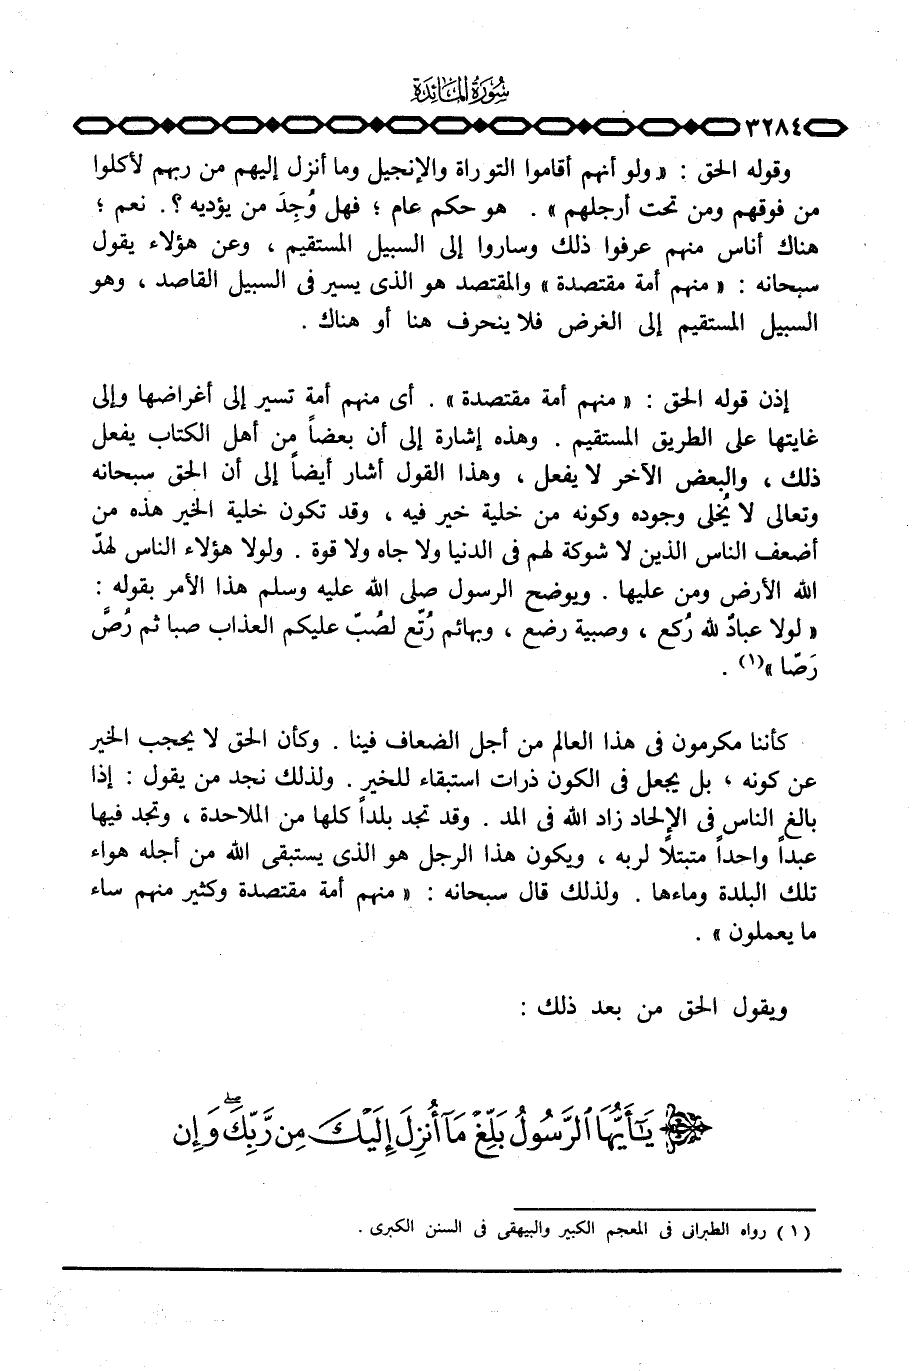 سُورَةُ المَائِدَة
٣٢٨٤
وقوله الحق : « ولو أنهم أقاموا التوراة والإنجيل وما أنزل إليهم من ربهم لأكلوا
من فوقهم ومن تحت أرجلهم » . هو حكم عام ؛ فهل وُجِدَ من يؤديه ؟. نعم ؛
هناك أناس منهم عرفوا ذلك وساروا إلى السبيل المستقيم ، وعن هؤلاء يقول
سبحانه : « منهم أمة مقتصدة » والمقتصد هو الذى يسير فى السبيل القاصد ، وهو
السبيل المستقيم إلى الغرض فلا ينحرف هنا أو هناك .
إذن قوله الحق : « منهم أمة مقتصدة » . أى منهم أمة تسير إلى أغراضها وإلى
غايتها على الطريق المستقيم . وهذه إشارة إلى أن بعضاً من أهل الكتاب يفعل
ذلك ، والبعض الآخر لا يفعل ، وهذا القول أشار أيضاً إلى أن الحق سبحانه
وتعالى لا يُخلى وجوده وكونه من خلية خير فيه ، وقد تكون خلية الخير هذه من
أضعف الناس الذين لا شوكة لهم فى الدنيا ولا جاه ولا قوة . ولولا هؤلاء الناس لهدّ
الله الأرض ومن عليها . ويوضح الرسول صلى الله عليه وسلم هذا الأمر بقوله :
« لولا عبادٌ لله رُكع ، وصبية رضع ، وبهائم رُتّع لصُبّ عليكم العذاب صبا ثم رُصَّ
رَصّا »(١) .
كأننا مكرمون فى هذا العالم من أجل الضعاف فينا . وكأن الحق لا يحجب الخير
عن كونه ؛ بل يجعل فى الكون ذرات استبقاء للخير . ولذلك نجد من يقول : إذا
بالغ الناس فى الإلحاد زاد الله فى المد . وقد تجد بلداً كلها من الملاحدة ، وتجد فيها
عبداً واحداً متبتلاً لربه ، ويكون هذا الرجل هو الذى يستبقى الله من أجله هواء
تلك البلدة وماءها . ولذلك قال سبحانه : « منهم أمة مقتصدة وكثير منهم ساء
ما يعملون » .
ويقول الحق من بعد ذلك :
يَٰٓأَيُّهَا ٱلرَّسُولُ بَلِّغْ مَآ أُنزِلَ إِلَيْكَ مِن رَّبِّكَ ۖ وَإِن
(١) رواه الطبرانى فى المعجم الكبير والبيهقى فى السنن الكبرى .